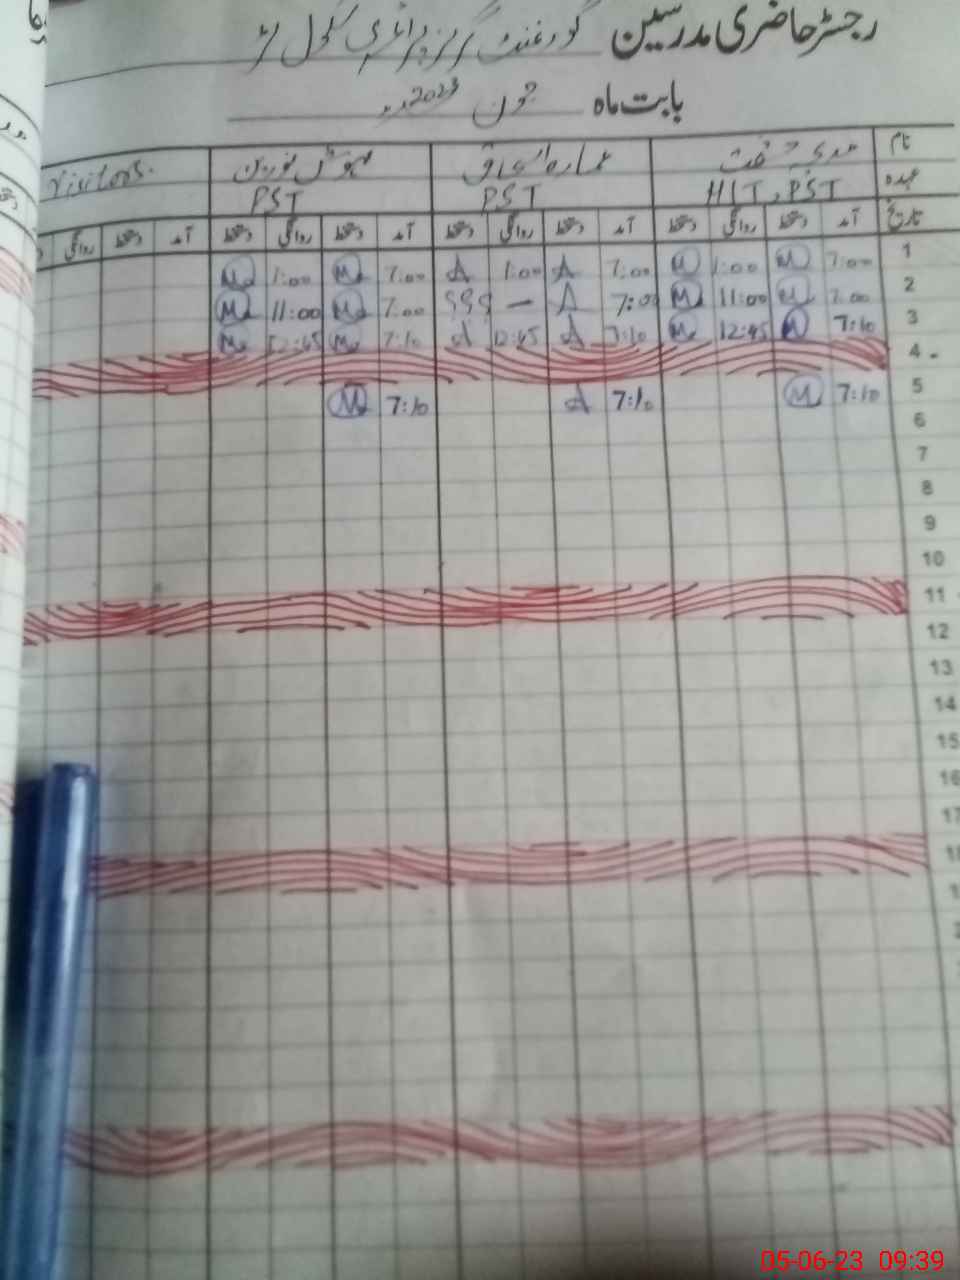 رجسٹر حاضری مدرسین گورنمنٹ گرلز پرائمری سکول
بابت ماہ جون 2023ء
نام Visitors.
عہدہ HIT, PST PST PST
تاریخ آمد دستخط روانگی دستخط آمد دستخط روانگی دستخط آمد دستخط روانگی دستخط آمد دستخط روانگی
1 7:00 M 1:00 M 7:00 A 1:00 A 7:00 M 1:00 M
2 7:00 M 11:00 M 7:00 A — ??? 7:00 M 11:00 M
3 7:10 M 12:45 M 7:10 A 12:45 A 7:10 M 12:45 M
4
5 7:10 M 7:10 A 7:10 M
6
7
8
9
10
11
12
13
14
15
16
17
05-06-23 09:39